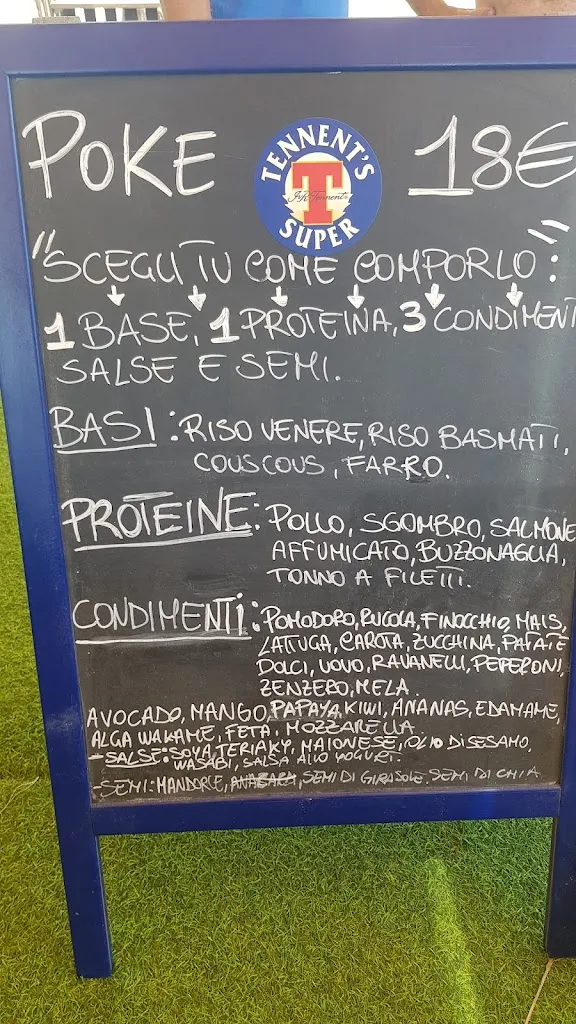 POKE 18€
TENNENT'S
T
J&R Tennent
SUPER
"SCEGLI TU COME COMPORLO":
1 BASE, 1 PROTEINA, 3 CONDIMENT
SALSE E SEMI.
BASI: RISO VENERE, RISO BASMATI,
COUSCOUS, FARRO.
PROTEINE: POLLO, SGOMBRO, SALMONE
AFFUMICATO, BUZZONAGLIA,
TONNO A FILETTI.
CONDIMENTI: POMODORO, RUCOLA, FINOCCHIO, MAIS,
LATTUGA, CAROTA, ZUCCHINA, PATATE
DOLCI, UOVO, RAVANELLI, PEPERONI,
ZENZERO, MELA.
AVOCADO, MANGO, PAPAYA, KIWI, ANANAS, EDAMAME,
ALGA WAKAME, FETA, MOZZARELLA
- SALSE: SOYA, TERIAKY, MAIONESE, OLIO DI SESAMO,
WASABI, SALSA ALLO YOGURT.
- SEMI: MANDORLE, SEMI DI GIRASOLE, SEMI DI CHIA